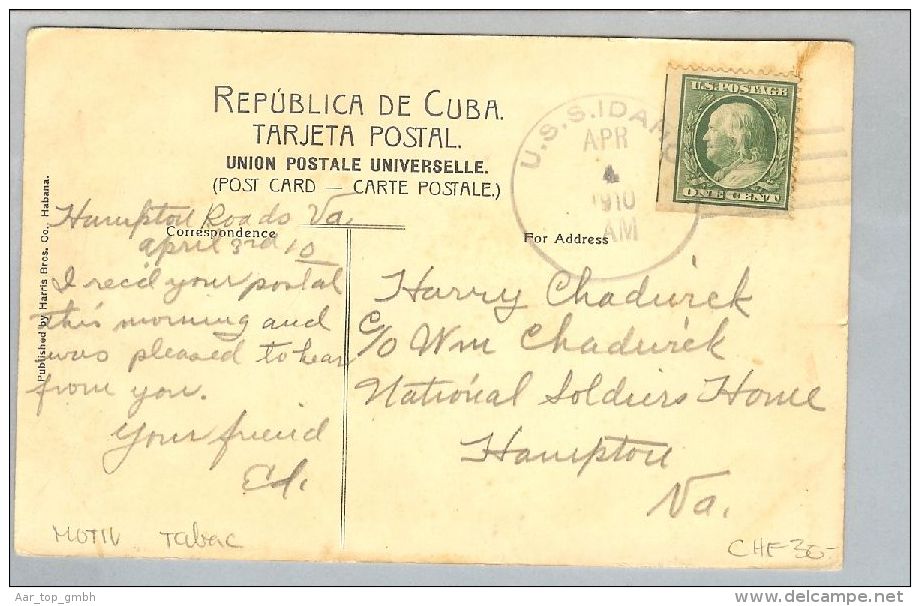 REPÚBLICA DE CUBA.
TARJETA POSTAL.
UNION POSTALE UNIVERSELLE.
(POST CARD — CARTE POSTALE.)
U.S.S. IDAHO
APR
4
1910
AM
U.S. POSTAGE
ONE CENT
Published by Harris Bros. Co., Habana.
Correspondence
For Address
Hampton Roads Va
April 3rd 10
I rec'd your postal
this morning and
was pleased to hear
from you.
Your friend
Ed.
Harry Chadwick
c/o Wm Chadwick
National Soldiers Home
Hampton
Va.
MOTIV Tabac
CHF 30-
Aar_top_gmbh
www.delcampe.net